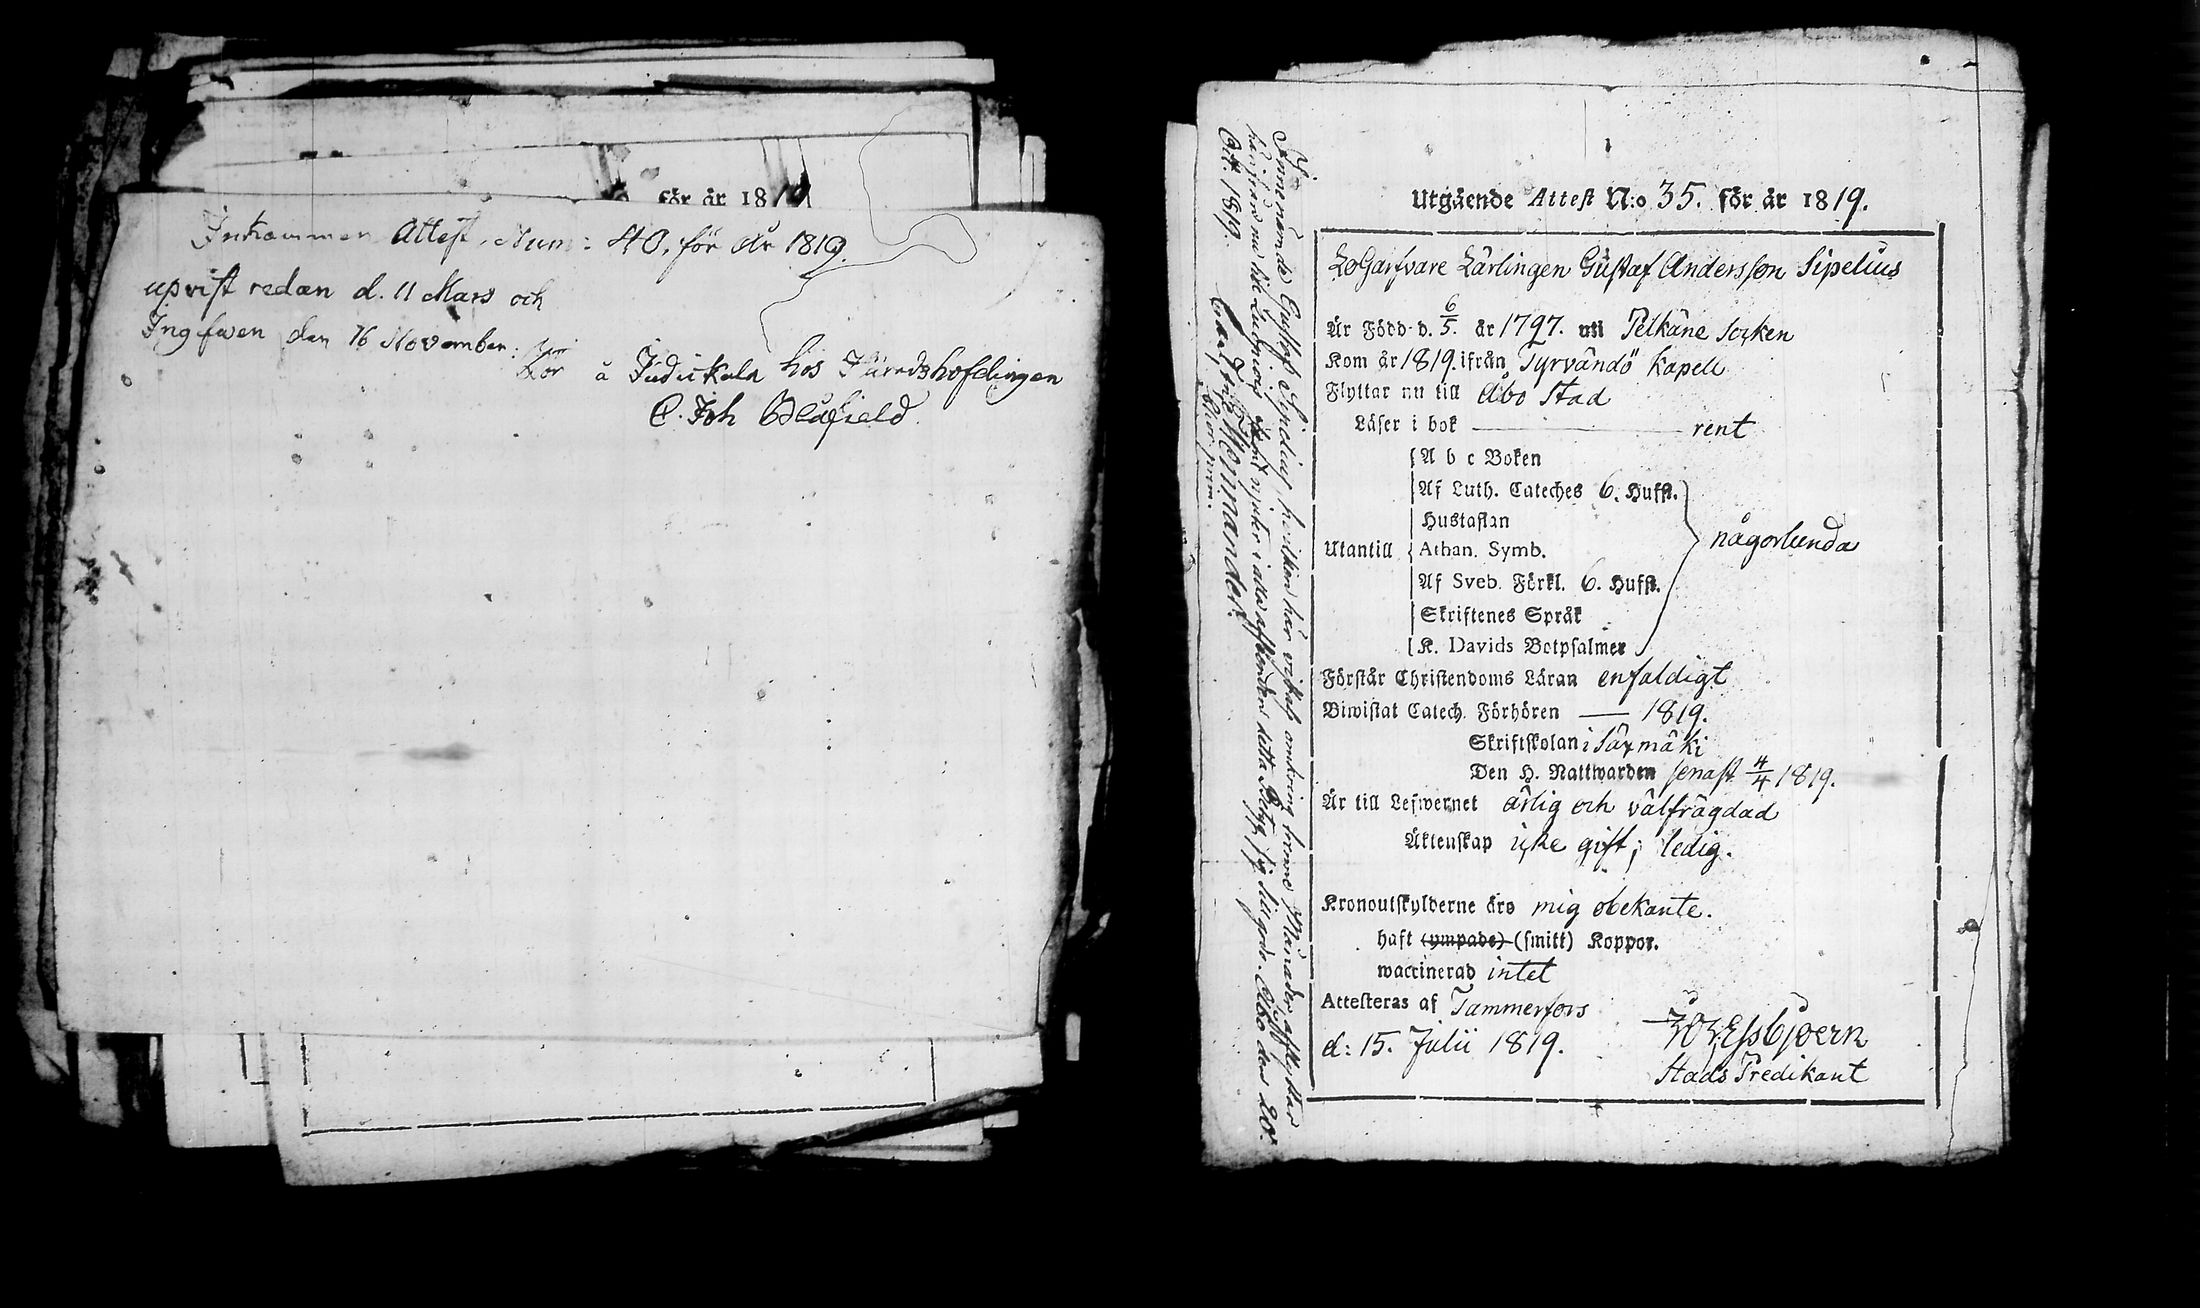 för år 1819
Inkommen Attest, Num: 40. för År 1819.
upvist redan d. 11 Mars och
Ingifwen den 16 November.
å Judickala hos Häradshöfdingen
C. Joh Blåfield.
Utgående Attest N:o 35. för år 1819.
LoGarfvare Lärlingen Gustaf Andersson Sipelius
Är Född d. 6/5. år 1797. uti Pelkäne Socken
Kom år 1819. ifrån Tyrvändö Kapell
Flyttar nu till Åbo Stad
Läser i bok rent
A b c Boken
Af Luth. Cateches 6. Hufst.
Hustaflan
Utantill Athan. Symb. någorlunda
Af Sveb. Förkl. 6. Hufst.
Skriftenes Språk
K. Davids Botpsalmer
Förstår Christendoms Läran enfaldigt
Biwistat Catech. Förhören — 1819.
Skriftskolan i Säxmäki
Den H. Nattwarden senast 4/4 1819.
Är till Lefwernet ärlig och välfrägdad
Äktenskap icke gift; ledig.
Kronoutskylderne äro mig obekante.
haft (ympade) (smitt) Koppor.
waccinerad intet
Attesteras af Tammerfors
d: 15. Julii 1819.
Essbjoern
Stads Predikant
Innenämnde Gustaf Sipelius hvilken här vistats omkring trenne Månader, afflyttar
nu till och njuter i alla afseenden detta Betyg sig till godo. Åbo den 20.
Oct. 1819.
Carl Memmander.